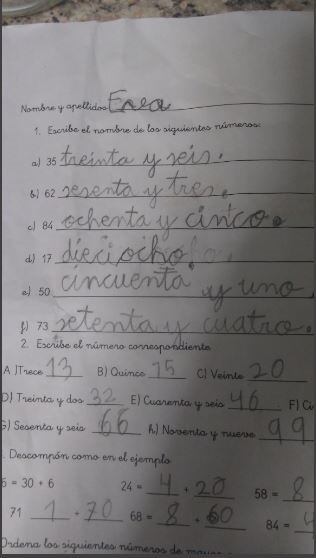 Nombre y apellidos Enea
1. Escribe el nombre de los siguientes números:
a) 35 treinta y seis.
b) 62 sesenta y tres.
c) 84 ochenta y cinco.
d) 17 dieciocho.
e) 50 cincuenta y uno,
f) 73 setenta y cuatro.
2. Escribe el número correspondiente
A )Trece 13 B) Quince 15 C) Veinte 20
D) Treinta y dos 32 E) Cuarenta y seis 46 F) Ci
G) Sesenta y seis 66 h) Noventa y nueve 99
. Descompón como en el ejemplo
6 = 30 + 6 24 = 4 + 20 58 = 8
71 1 + 70 68 = 8 + 60 84 = 4
Ordena los siguientes números de mayor